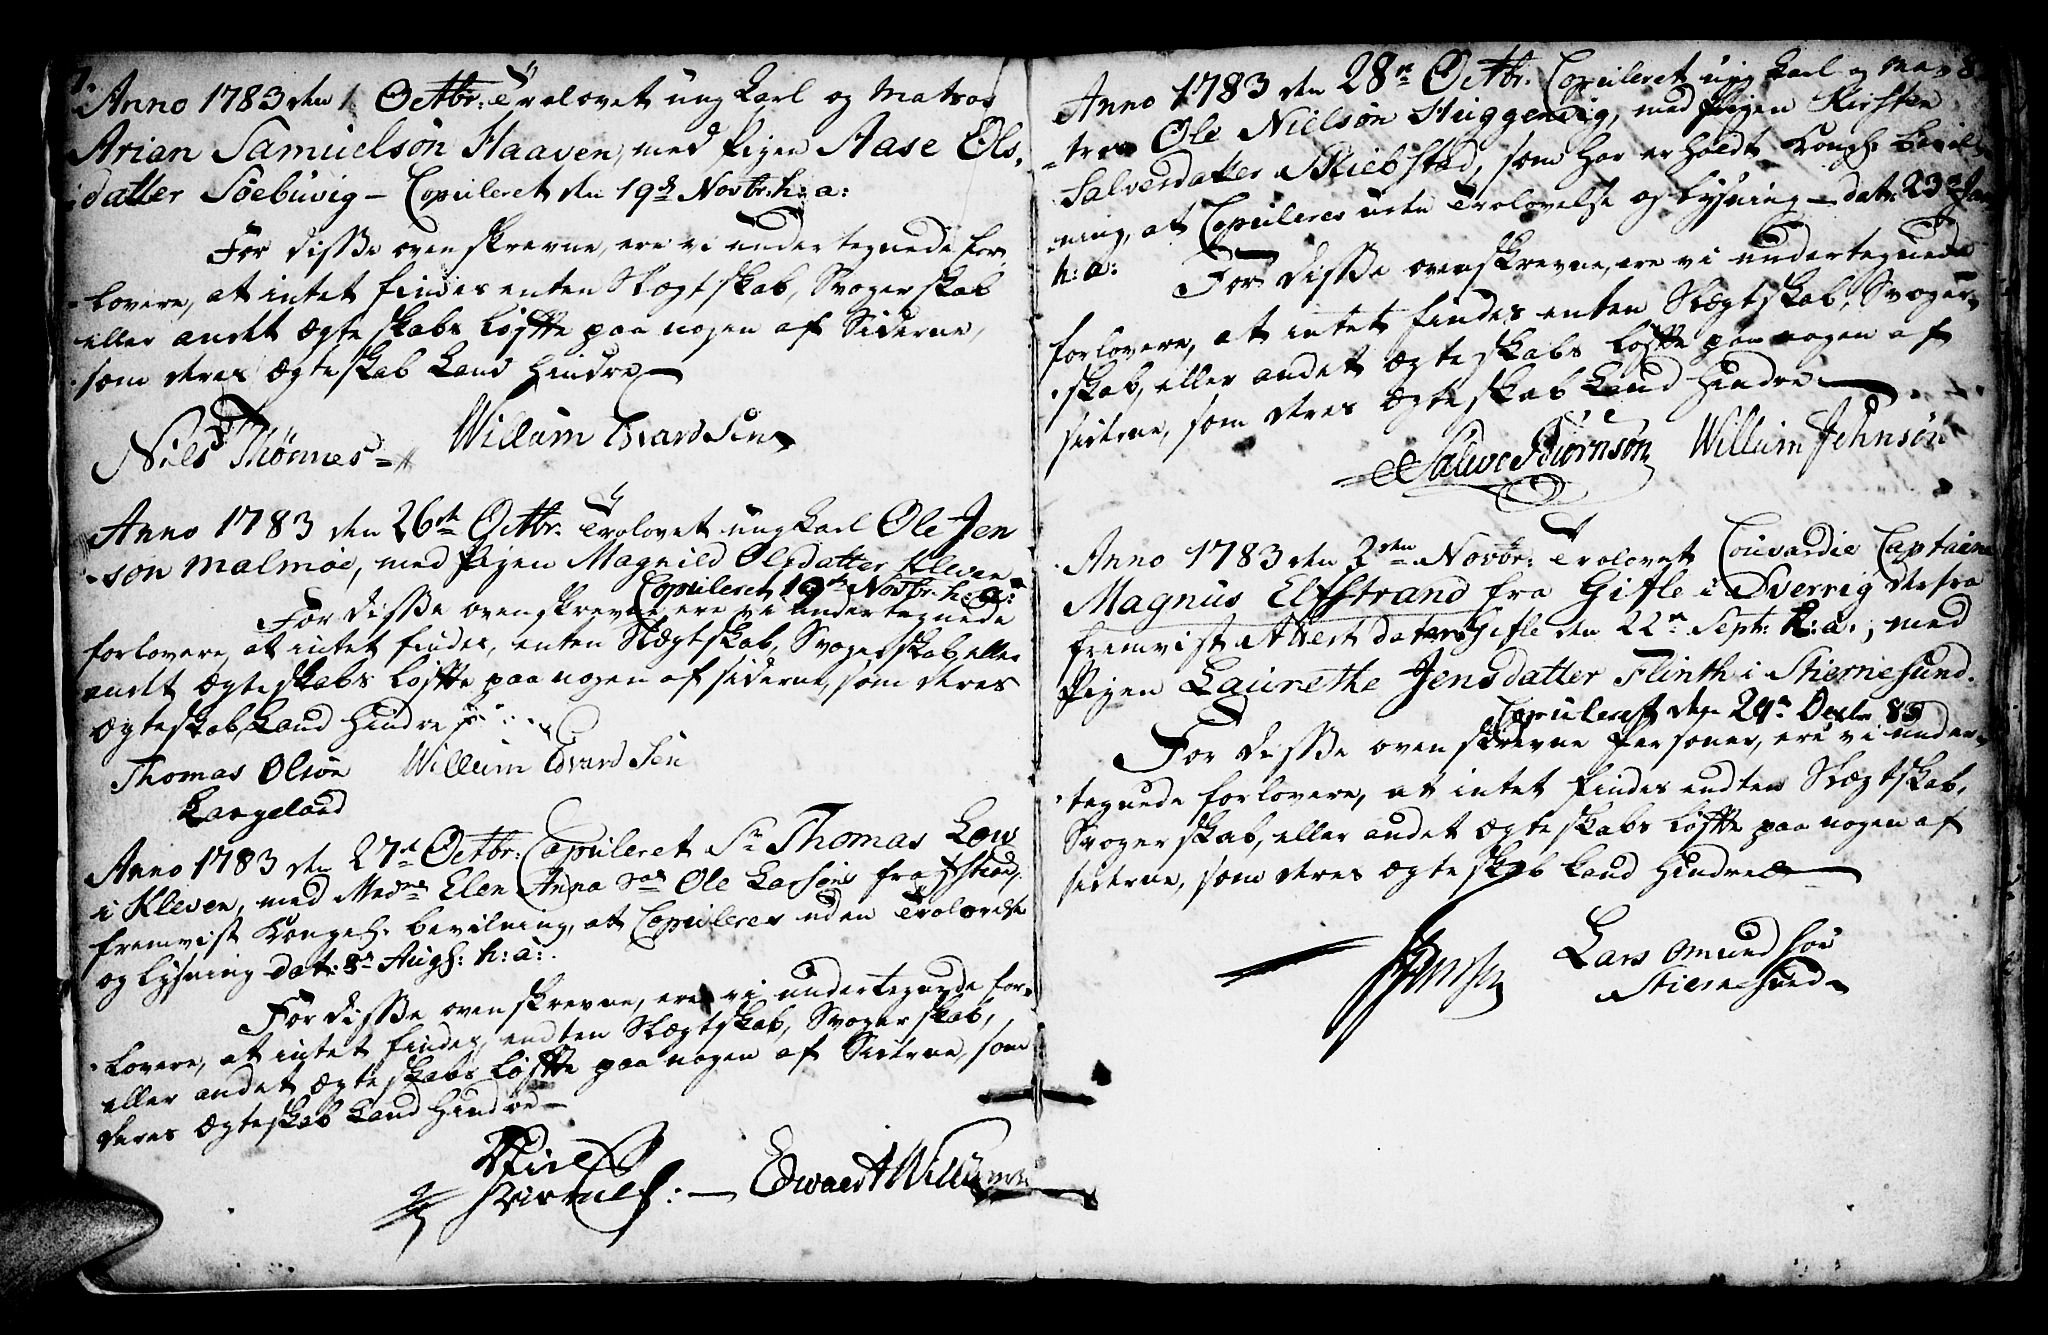 7.
Anno 1783 den 1 Octbr: Trolovet ung Karl og Matros
Arian Samuelsøn Haaven, med Pigen Aase Ols,
datter Søebuvig - Copuleret den 19de Novbr: h: a:
For disse ovenskrevne, ere vi undertegnede for,
lovere, at intet findes enten Slægtskab, Svogerskab
eller andet Ægteskabs Løffte paa nogen af Siderne,
som deres Ægteskab kand hindre
Niels Thønnes= Willum Edvardsen
Anno 1783 den 26de Octbr: Trolovet ung Karl Ole Jen
søn Malmøe, med Pigen Magnild Olsdatter Kleven
Copuleret 19de Novbr: h: a:
For disse ovenskrevne ere vi undertegnede
forlovere, at intet findes, enten Slægtskab, Svogerskab, eller
andet Ægteskabs Løffte paa nogen af siderne, som deres
Ægteskab kand hindre
Thomas Olsøn Willum Edvardsen
Langeland
Anno 1783 den 27de Octbr: Copuleret Sr Thomas Low
i Kleven, med Madme Elen Anna Ole Larsøns fra
fremvist Kongel: bevilning, at Copuleres uden Trolovelse
og lysning dat: 8de Aug: h: a:.
For disse ovenskrevne, ere vi undertegnede for,
lovere, at intet findes, endten Slægtskab, Svogerskab,
eller andet Ægteskabs Løffte paa nogen af Siderne, som
deres Ægteskab kand hindre
Edwaert Willumsen
8.
Anno 1783 den 28de Octbr: Copuleret ung Karl og Ma,
tros Ole Nielsøn Huggending, med Pigen Kirsten
Salvesdatter Skiebstad, som har erholdt Kongl: bevil,
ning, at Copuleres uden Trolovelse og lysning - dat: 23de
h: a:
For disse ovenskrevne, ere vi undertegnede
forlovere, at intet findes enten Slægtskab, Svoger,
skab, eller andet Ægteskabs Løffte paa nogen af
siderne, som deres Ægteskab kand hindre
Salve Biørnsøn Willum Johnsøn
Anno 1783 den 2den Novbr: Trolovet Couvardie Captaine
Magnus Elfstrand fra Gifle i Sverrig derfra
fremvist Attest dateret Gifle den 22de Sept: h: a:, med
Pigen Laurethe Jensdatter Flinth i Stiernesund.
Copuleret den 29de Decbr 83
For disse ovenskrevne Personer, ere vi under,
tegnede forlovere, at intet findes endten Slægtskab,
Svogerskab, eller andet Ægteskabs Løffte paa nogen af
siderne, som deres Ægteskab kand hindre
Lars Omundsøn
Stiernesund